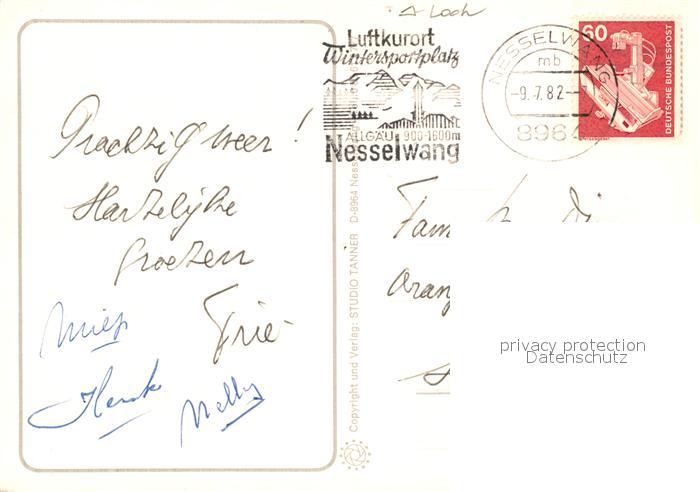 Loch
Luftkurort
Wintersportplatz
ALLGÄU 900-1600m
Nesselwang
NESSELWANG
mb
-9.7.82-
8964
60
DEUTSCHE BUNDESPOST
Prachtig weer!
Hartelijke
Groeten
Miep
Trie
Henk
Nelly
Copyright und Verlag: STUDIO TANNER D-8964 Ness
Fam
Oran
privacy protection
Datenschutz